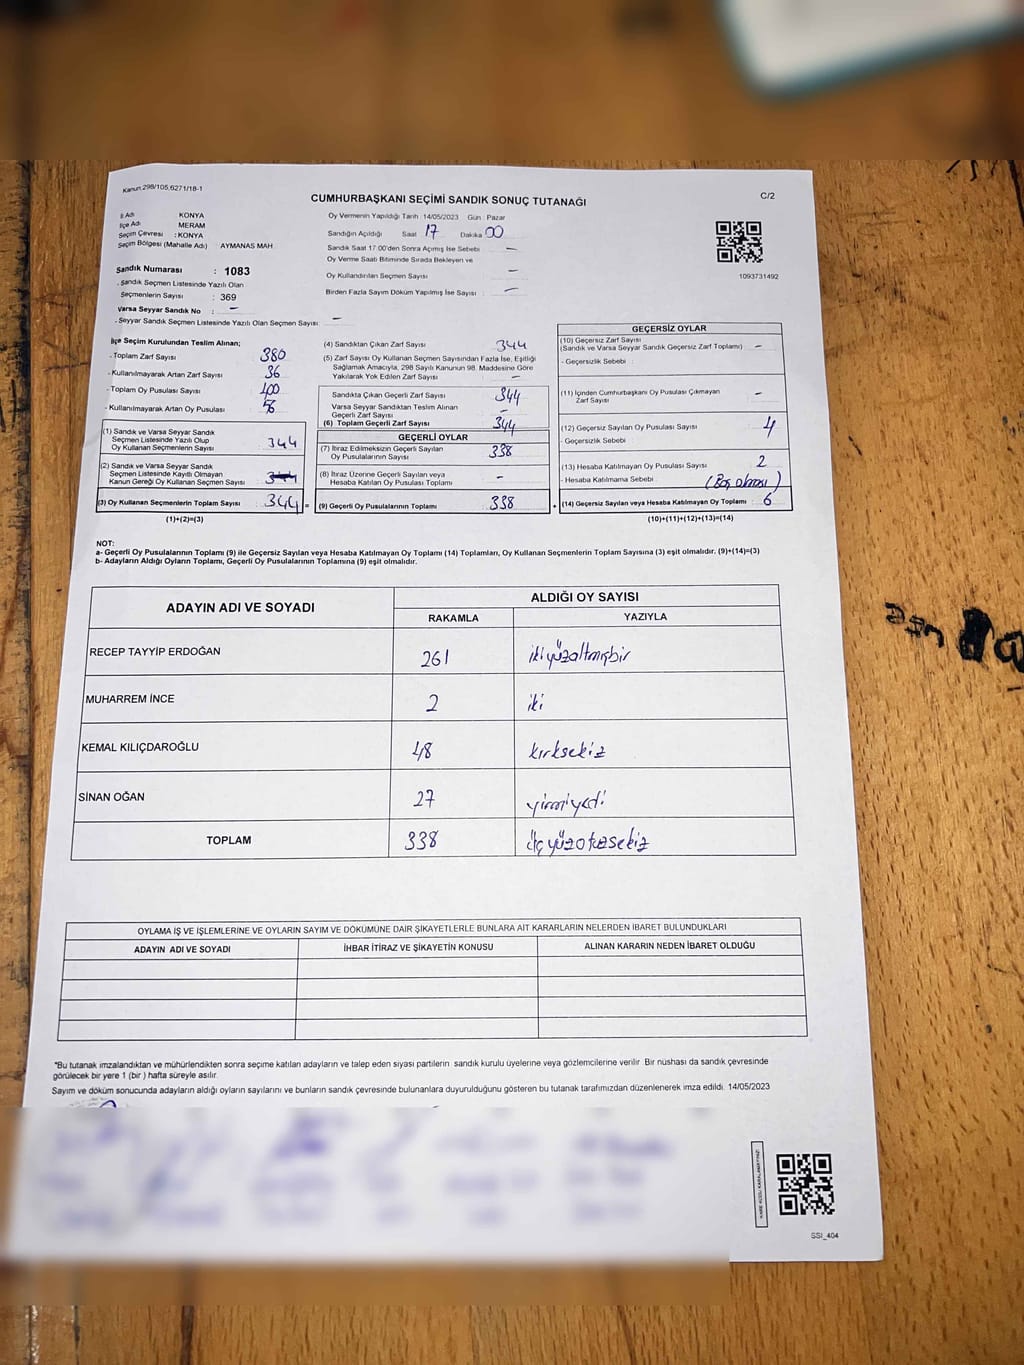 Kanun:298/105,6271/18-1
C/2
CUMHURBAŞKANI SEÇİMİ SANDIK SONUÇ TUTANAĞI
İl Adı KONYA
İlçe Adı MERAM
Seçim Çevresi : KONYA
Seçim Bölgesi (Mahalle Adı) : AYMANAS MAH.
Sandık Numarası : 1083
. Sandık Seçmen Listesinde Yazılı Olan
Seçmenlerin Sayısı : 369
Varsa Seyyar Sandık No : –
. Seyyar Sandık Seçmen Listesinde Yazılı Olan Seçmen Sayısı: –
Oy Vermenin Yapıldığı Tarih : 14/05/2023 Gün : Pazar
Sandığın Açıldığı Saat 17 Dakika 00
Sandık Saat 17:00'den Sonra Açımış İse Sebebi –
Oy Verme Saati Bitiminde Sırada Bekleyen ve
Oy Kullandırılan Seçmen Sayısı –
Birden Fazla Sayım Döküm Yapılmış İse Sayısı : –
1093731492
İlçe Seçim Kurulundan Teslim Alınan;
- Toplam Zarf Sayısı : 380
- Kullanılmayarak Artan Zarf Sayısı : 36
- Toplam Oy Pusulası Sayısı : 400
- Kullanılmayarak Artan Oy Pusulası : 56
(1) Sandık ve Varsa Seyyar Sandık
Seçmen Listesinde Yazılı Olup
Oy Kullanan Seçmenlerin Sayısı : 344
(2) Sandık ve Varsa Seyyar Sandık
Seçmen Listesinde Kayıtlı Olmayan
Kanun Gereği Oy Kullanan Seçmen Sayısı :
(3) Oy Kullanan Seçmenlerin Toplam Sayısı : 344 =
(1)+(2)=(3)
(4) Sandıktan Çıkan Zarf Sayısı : 344
(5) Zarf Sayısı Oy Kullanan Seçmen Sayısından Fazla İse, Eşitliği
Sağlamak Amacıyla, 298 Sayılı Kanunun 98. Maddesine Göre
Yakılarak Yok Edilen Zarf Sayısı : –
Sandıkta Çıkan Geçerli Zarf Sayısı : 344
Varsa Seyyar Sandıktan Teslim Alınan
Geçerli Zarf Sayısı : –
(6) Toplam Geçerli Zarf Sayısı : 344
GEÇERLİ OYLAR
(7) İtiraz Edilmeksizin Geçerli Sayılan
Oy Pusulalarının Sayısı : 338
(8) İtiraz Üzerine Geçerli Sayılan veya
Hesaba Katılan Oy Pusulası Toplamı : –
(9) Geçerli Oy Pusulalarının Toplamı : 338 +
GEÇERSİZ OYLAR
(10) Geçersiz Zarf Sayısı
(Sandık ve Varsa Seyyar Sandık Geçersiz Zarf Toplamı) : –
- Geçersizlik Sebebi :
(11) İçinden Cumhurbaşkanı Oy Pusulası Çıkmayan
Zarf Sayısı : –
(12) Geçersiz Sayılan Oy Pusulası Sayısı : 4
- Geçersizlik Sebebi :
(13) Hesaba Katılmayan Oy Pusulası Sayısı : 2
- Hesaba Katılmama Sebebi : (Boş olması)
(14) Geçersiz Sayılan veya Hesaba Katılmayan Oy Toplamı : 6
(10)+(11)+(12)+(13)=(14)
NOT:
a- Geçerli Oy Pusulalarının Toplamı (9) ile Geçersiz Sayılan veya Hesaba Katılmayan Oy Toplamı (14) Toplamları, Oy Kullanan Seçmenlerin Toplam Sayısına (3) eşit olmalıdır. (9)+(14)=(3)
b- Adayların Aldığı Oyların Toplamı, Geçerli Oy Pusulalarının Toplamına (9) eşit olmalıdır.
ADAYIN ADI VE SOYADI ALDIĞI OY SAYISI
RAKAMLA YAZIYLA
RECEP TAYYİP ERDOĞAN 261 ikiyüzaltmışbir
MUHARREM İNCE 2 iki
KEMAL KILIÇDAROĞLU 48 kırksekiz
SİNAN OĞAN 27 yirmiyedi
TOPLAM 338 üçyüzotuzsekiz
OYLAMA İŞ VE İŞLEMLERİNE VE OYLARIN SAYIM VE DÖKÜMÜNE DAİR ŞİKAYETLERLE BUNLARA AİT KARARLARIN NELERDEN İBARET BULUNDUKLARI
ADAYIN ADI VE SOYADI İHBAR İTİRAZ VE ŞİKAYETİN KONUSU ALINAN KARARIN NEDEN İBARET OLDUĞU
*Bu tutanak imzalandıktan ve mühürlendikten sonra seçime katılan adayların ve talep eden siyasi partilerin sandık kurulu üyelerine veya gözlemcilerine verilir. Bir nüshası da sandık çevresinde
görülecek bir yere 1 (bir) hafta süreyle asılır.
Sayım ve döküm sonucunda adayların aldığı oyların sayılarını ve bunların sandık çevresinde bulunanlara duyurulduğunu gösteren bu tutanak tarafımızdan düzenlenerek imza edildi. 14/05/2023
SSI_404